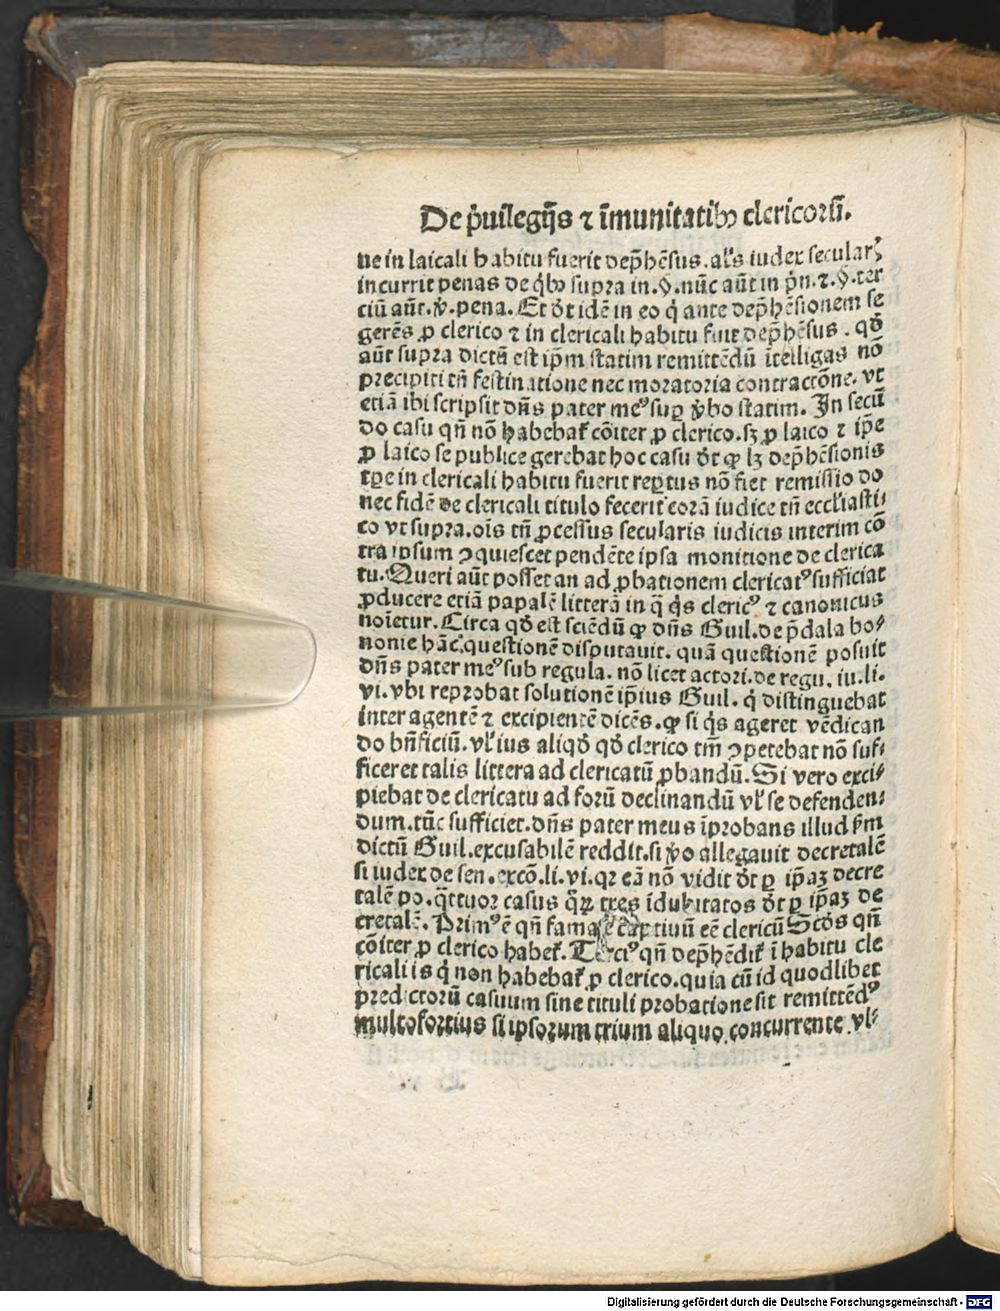 De p̄uilegijs ⁊ īmunitatibꝫ clericoꝝ.
ue in laicali habitu fuerit dep̄hēsus. al's iudex secularꝫ
incurrit penas de q̇bꝫ supra in .§. nūc aūt in pn̄. ⁊ .§. ter
ciū aūt. ꝟ. pena. Et dr̄ idē in eo q̇ ante dep̄hēsionem se
gerēs ꝓ clerico ⁊ in clericali habitu fuit dep̄hēsus . qd̄
aūt supra dictū est ip̄m statim remittēdū ītelligas nō
precipiti tn̄ festinatione nec moratoria contractōne. vt
etiā ibi scripsit dn̄s pater meꝰ suꝑ ꝟbo statim. In secū
do casu qn̄ nō habebat᷑ cōiter ꝓ clerico. sꝫ ꝓ laico ⁊ ip̄e
ꝓ laico se publice gerebat hoc casu dr̄ ꝙ lꝫ dep̄hēsionis
tꝑe in clericali habitu fuerit reꝑtus nō fiet remissio do
nec fidē de clericali titulo fecerit corā iudice tn̄ eccl'iasti⸗
co vt supra. oīs tn̄ ꝓcessus secularis iudicis interim cō
tra ipsum ꝯquiescet pendēte ipsa monitione de clerica
tu. Queri aūt posset an ad ꝓbationem clericatꝰ sufficiat
ꝓducere etiā papalē litterā in q̄ q̇s clericꝰ ⁊ canonicus
noīetur. Circa qd̄ est sciēdū ꝙ dn̄s Guil. de p̄dala bo⸗
nonie hāc questionē disputauit. quā questionē posuit
dn̄s pater meꝰ sub regula. nō licet actori. de regu. iu. li.
vi. vbi reprobat solutionē ip̄ius Guil. q̇ distinguebat
inter agentē ⁊ excipientē dicēs. ꝙ si q̇s ageret vēdican
do bn̄ficiū. vl' ius aliqd̄ qd̄ clerico tm̄ ꝯpetebat nō suf⸗
ficeret talis littera ad clericatū ꝓbandū. Si vero exci⸗
piebat de clericatu ad forū declinandū vl' se defenden⸗
dum. tūc sufficiet. dn̄s pater meus īprobans illud ṗm
dictū Guil. excusabilē reddit. si ꝟo allegauit decretalē
si iudex de sen. excō. li. vi. qꝛ eā nō vidit dr̄ ꝑ ip̄aꝫ decre
talē po. q̄ttuor casus q̄ꝝ tres īdubitatos dr̄ ꝑ ip̄aꝫ de
cretalē. Primꝰ ē qn̄ fama captiuū eē clericū Scd̄s qn̄
cōiter ꝓ clerico habet᷑. Terciꝰ qn̄ dep̄hēdit᷑ ī habitu cle
ricali is q̇ non habebat᷑ ꝓ clerico. quia cū id quodlibet
predictorū casuum sine tituli probatione sit remittēdꝰ
multofortius si ipsorum trium aliquo concurrente vl'
Digitalisierung gefördert durch die Deutsche Forschungsgemeinschaft - DFG